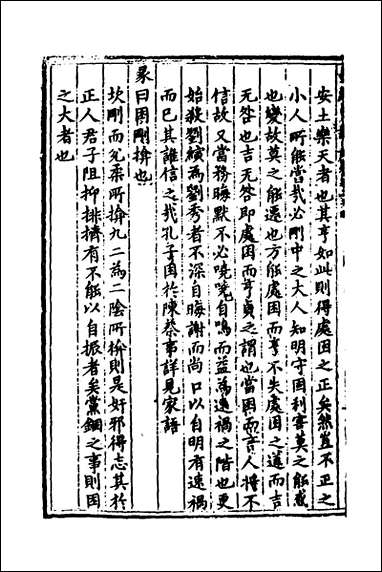 安土樂天者也其亨如此則得處困之正矣然豈不正之
小人所能當哉必剛中之大人知明守固利害莫之能惑
也變故莫之能遷也方能處困而亨不失處困之道而吉
无咎也吉无咎即處困而亨貞之謂也當困而言人將不
信故又當務晦默不必曉曉自鳴而益為速禍之階也更
始殺劉縯為劉秀者不深自晦謝而尚口以自明有速禍
而已其誰信之哉孔子困於陳蔡事詳見家語
彖曰困剛揜也
坎剛而兌柔所揜九二為二陰所揜則是奸邪得志其於
正人君子阻抑排擠有不能以自振者矣黨錮之事則困
之大者也